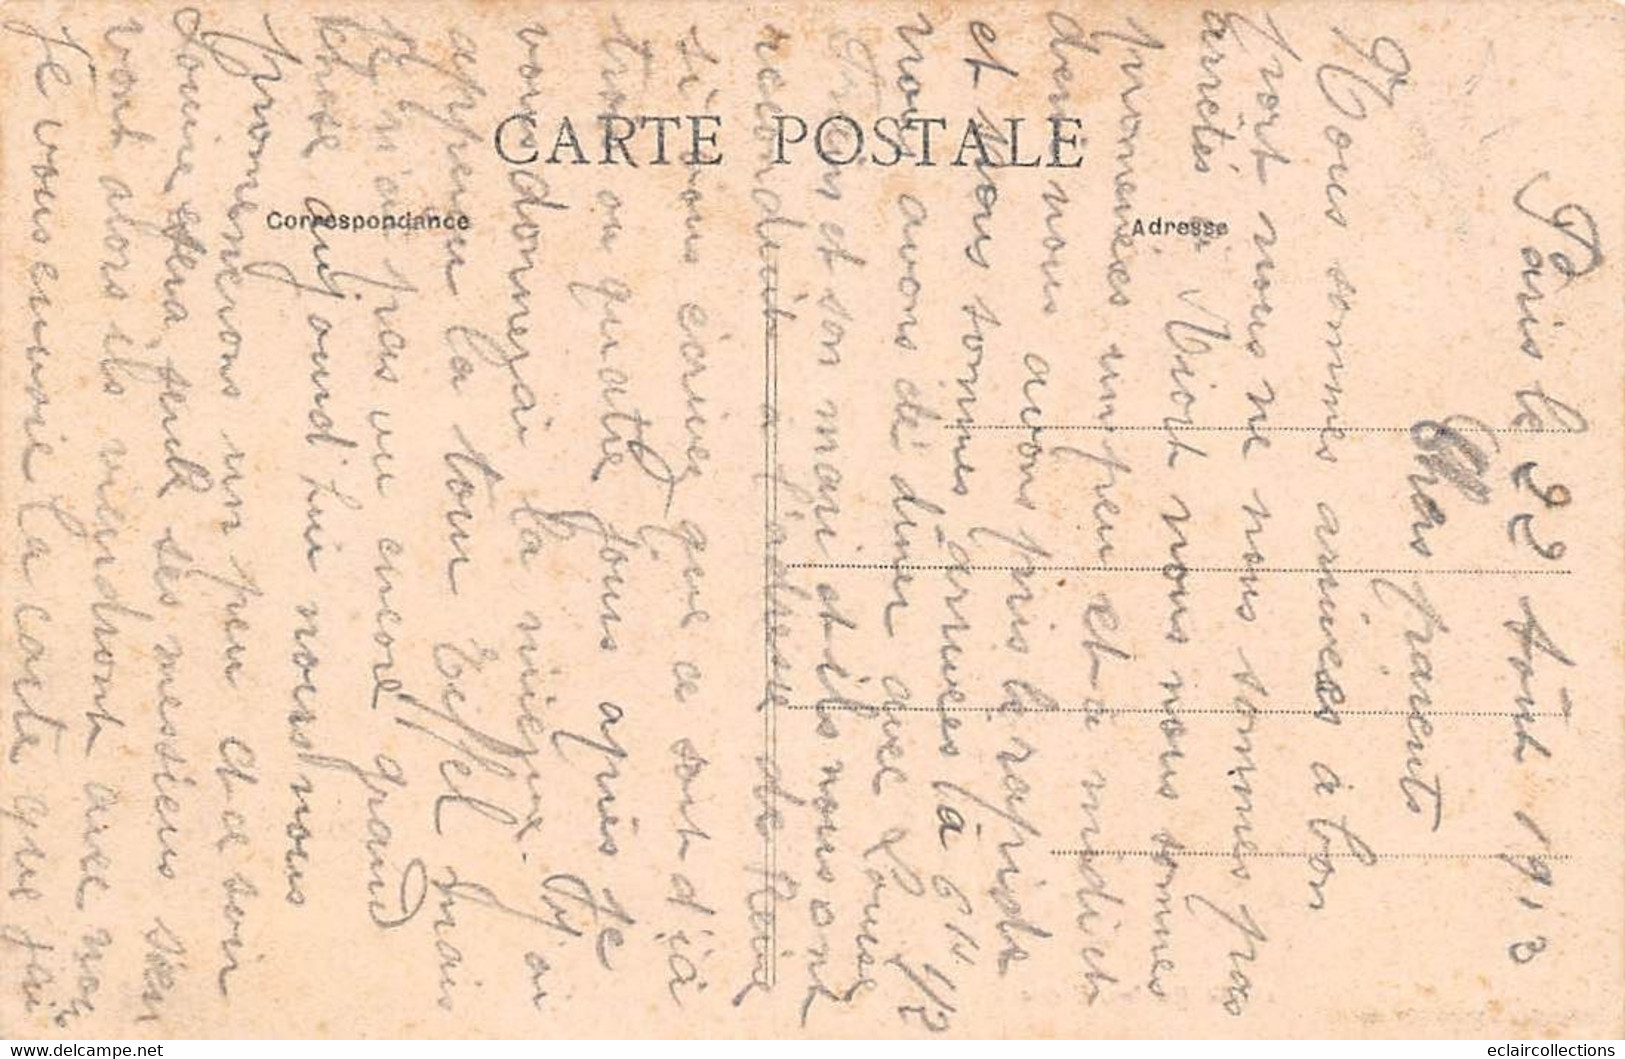 CARTE POSTALE
Correspondance
Adresse
Paris le 22 Août 1913
Chers parents
Nous sommes arrivées à bon
port nous ne nous sommes pas
arrêtés à Niort nous nous sommes
promenées un peu et à midi et
demi nous avons pris le rapide
et nous sommes arrivées à 6 h 1/2
nous avons dé dîner avec Louise
et son mari et ils nous ont
reconduit à l'adresse de
si vous écrivez que ce soit d'ici
trois ou quatre jours après je
vous donnerai la mienne. J'ai
apperçu la tour Eiffel mais
je n'ai pas vu encore grand
chose aujourd'hui nous nous
promenerons un peu et ce soir
Louise sera seule ses messieurs s'en
vont alors ils viendront avec nous
Je vous envoie la carte que j'ai
eclaircollections@delcampe.net